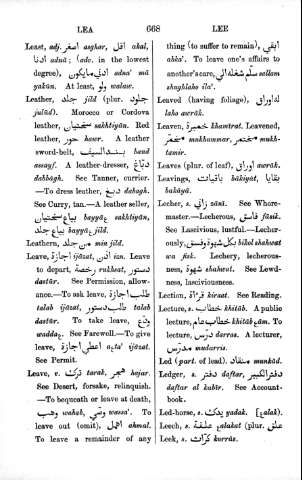 LEA 668 LEE
Least, adj. اصغر asghar, اقل akal,
ادنا adnâ; (adv. in the lowest
degree), ادني مايكون adna' mâ
yakûn. At least, ولو walaw.
Leather, جلد jild (plur. جلود
julûd). Morocco or Cordova
leather, سختيان sakhtiyân. Red
leather, حور hawr. A leather
sword-belt, بند السيف band
assayf. A leather-dresser, دبّاغ
dabbâgh. See Tanner, currier.
—To dress leather, دبغ dabagh.
See Curry, tan.—A leather seller,
بياع سختيان bayyâع sakhtiyân,
بياع جلد bayyâع jild.
Leathern, من جلد min jild.
Leave, s. اجازة ijâzat, اذن izn. Leave
to depart, رخصة rukhsat, دستور
dastûr. See Permission, allow-
ance.—To ask leave, طلب اجازة
talab ijâzat, طلب دستور talab
dastûr. To take leave, ودّع
waddaع. See Farewell.—To give
leave, اعطي اجازة aعta' ijâzat.
See Permit.
Leave, v. ترك tarak, هجر hajar.
See Desert, forsake, relinquish.
—To bequeath or leave at death,
وهب wahab, وصّي wassa'. To
leave out (omit), اهمل ahmal.
To leave a remainder of any
thing (to suffer to remain), ابقي
abka'. To leave one's affairs to
another's care, سلّم شغله الي sallam
shughlaho ila'.
Leaved (having foliage), له اوراق
laho awrâk.
Leaven, خميرة khamîrat. Leavened,
مخمّر mukhammar, مختمر mukh-
tamir.
Leaves (plur. of leaf), اوراق awrâk.
Leavings, باقيات bâkiyât, بقايا
bakâyâ.
Lecher, s. زاني zânî. See Whore-
master.—Lecherous, فاسق fâsik.
See Lascivious, lustful.—Lecher-
ously, بكل شهوة وفسق bikol shahwat
wa fisk. Lechery, lecherous-
ness, شهوة shahwat. See Lewd-
ness, lasciviousness.
Lection, قراءة kirâat. See Reading.
Lecture, s. خطاب khitâb. A public
lecture, خطاب عام khitâb عâm. To
lecture, درّس darras. A lecturer,
مدرّس mudarris.
Led (part. of lead). منقاد munkâd.
Ledger, s. دفتر daftar, دفتر الكبير
daftar al kabîr. See Account-
book.
Led-horse, s. يدك yadak. [عalak).
Leech, s. علقة عalakat (plur. علق
Leek, s. كراث kurrâs.